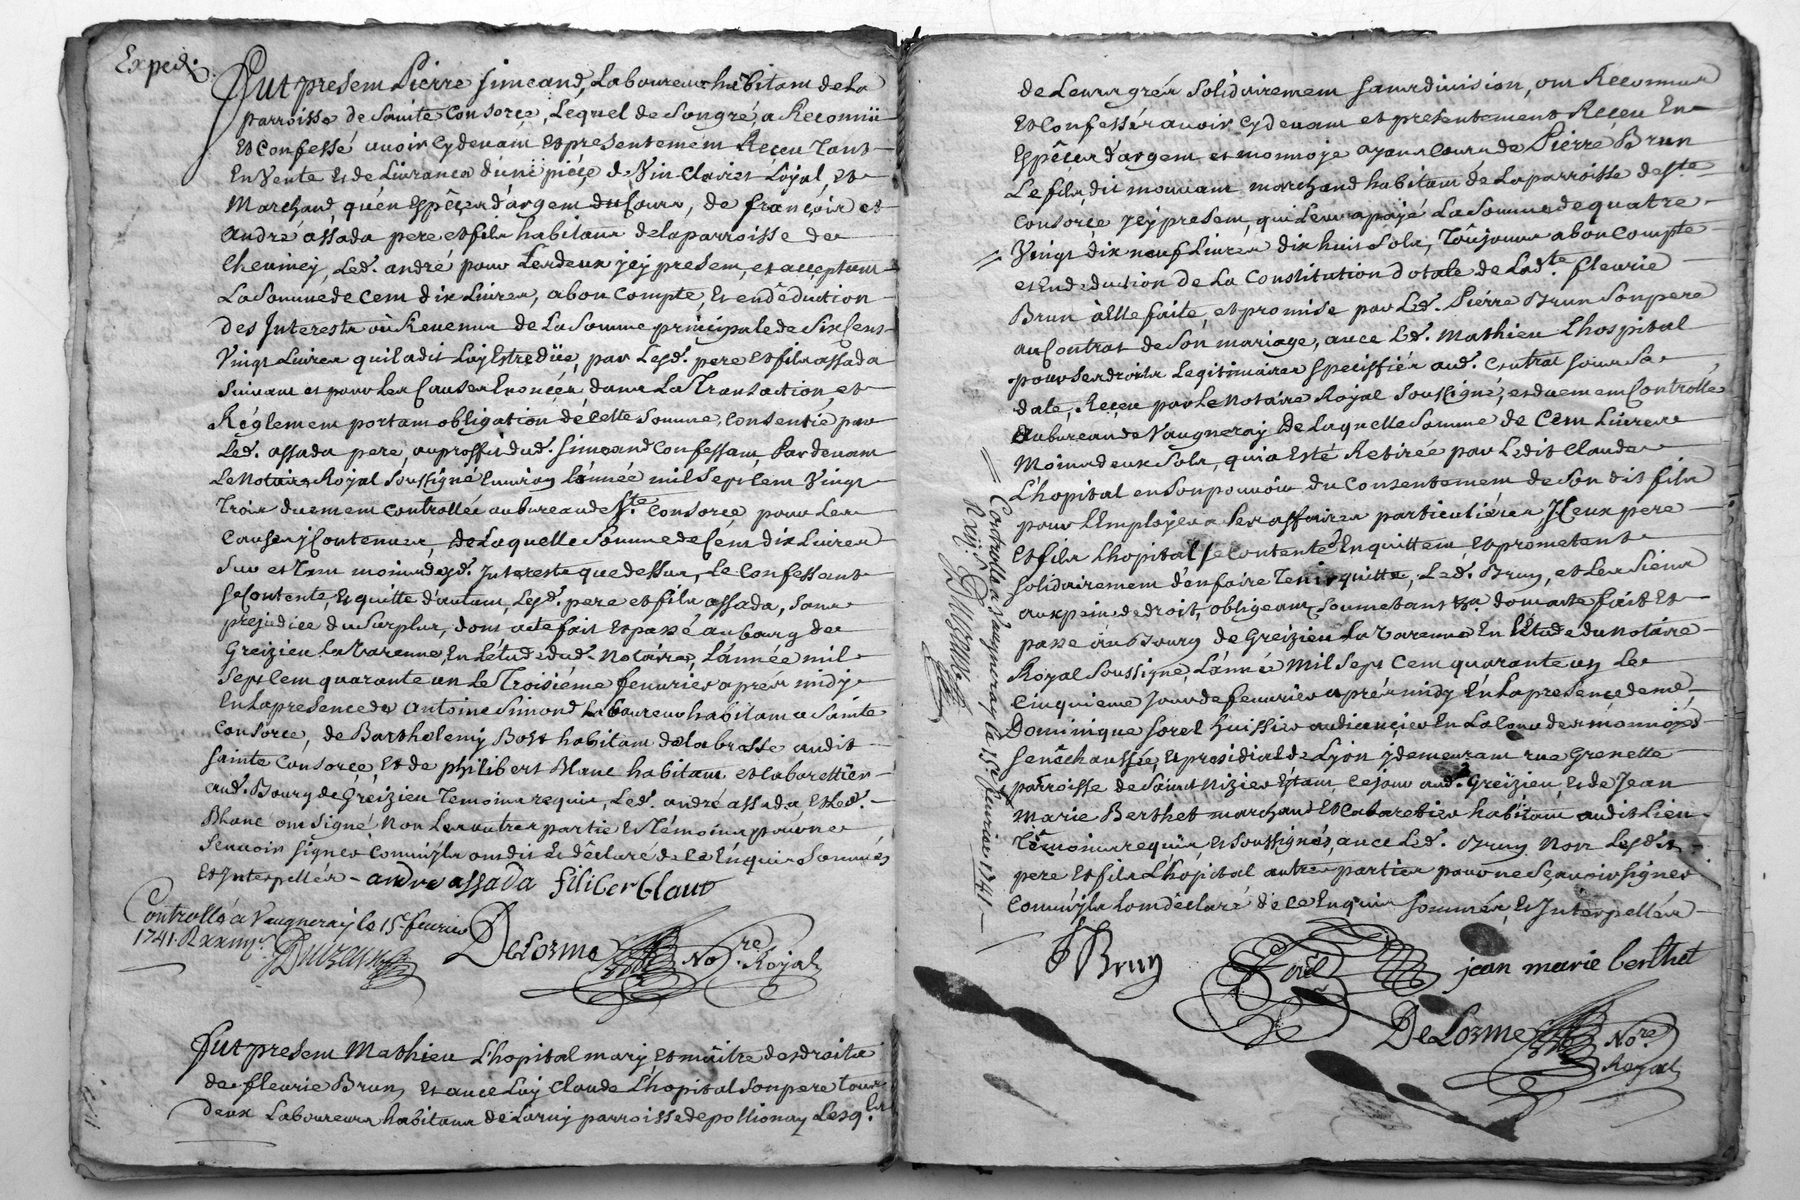 Expedi.
Fut present Pierre simeand, Laboureur habitant de La
parroisse de Sainte Consorce, Lequel de Son gré, a Reconnü
Et Confessé avoir Cy devant Et presentement Receu Tant
En Vente Et de Livrance d'une piéçe de Vin Clairet Loyal, et
Marchand, qu'en Espêçes d'argent du Cours, de françois et
André assada pere et fils habitans de la parroisse de
Cheviney, Led. andré pour Les deux ycy present, et acceptant
La Somme de Cent dix Livres, a bon Compte, Et en dêduction
des Interests où Revenus de La Somme principale de Six Cent
Vingt Livres quil a dit Luy Estre düe, par Lesd. pere Et fils assada
Suivant et pour Les Causes Enoncées dans La Transaction, et
Réglement portant obligation de cette Somme, Consentie par
Led. assada pere, au proffit dud. Simeand Confessant, Pardevant
Le Notaire Royal Soussigné Environ L'année mil Sept Cent Vingt
Trois duement Controllée au bureau de Ste. Consorce pour Les
Causes y Contenues, de Laquelle Somme de Cent dix Livres
Sur et Tant moins desd. Interests que dessus, Le Confessant
Se Contente, Et quitte d'autant Lesd. pere et fils assada, Sans
prejudice du Surplus, dont acte fait Et passé au bourg de
Greizieu La Varenne, En L'étude dud. Notaire, L'année mil
Sept Cent quarante un Le Troisiéme fevrier aprés midy
En La presence de Antoine Simond Laboureur habitant a Sainte
Consorce, de Barthelemy Bost habitant de La brosse audit
Sainte Consorce Et de philibert Blanc habitant et Cabarettier
aud. Bourg de Greizieu Temoins requis, Led. andré assada Et Led.
Blanc ont Signé, Non Les autres partie Et Témoins pour ne
Scavoir Signer Comm'ils ont dit Et dêclaré de Ce Enquis Sommés
Et Interpellés - andre assada filiber blanc
Controllé a Vaugneray le 15e. fevrier
1741. R
De Lorme Nore. Royal
Fut present Mathieu L'hopital mary Et maître des droits
de fleurie Brun, Et avec Luy Claude L'hopital Son pere tous
deux Laboureurs habitans de Larny parroisse de pollionay Lesqls
de Leurs grés Solidairement Sans division, ont Reconnus
Et Confessés avoir Cy devant et presentement Receu En
Espêçes d'argent et monnoye ayant Cours de Pierre Brun
Le fils dit mouvant marchand habitant de La parroisse de Ste
Consorce ycy present, qui Leur a payé La Somme de quatre
Vingt dix neuf Livres dix huit Sols, Toûjours a bon Compte
et En deduction de La Constitution dotale de Ladte. fleurie
Brun à Elle faite, et promise par Led. Pierre Brun Son pere
au Contrat de Son mariage, avec Led. Mathieu L'hospital
pour Ses droits Legitimaires Specifiés aud. Contrat Sous Sa
date, Receu par Le Notaire Royal Soussigné, et duement Controllé
au bureau de Vaugneray de Laquelle Somme de Cent Livres
Moins deux Sols, qui a Esté Retirée par Ledit Claude
L'hopital en Son pouvoir du Consentement de Son dit fils
pour L'Employer a Ses affaires particuliéres Iceux pere
Et fils L'hopital Se Contentet En quittent Et promettent
Solidairement d'en faire Tenir quitte, Led. Brun, et Les Siens
aux peine de droit, obligeant, Soumetant &a. dont acte fait Et
passé au Bourg de Greizieu La Varenne En L'Etude du Notaire
Royal Soussigné, L'année Mil Sept Cent quarante un Le
Cinquieme Jour de fevrier aprés midy En La presence de me.
Dominique Sorel huissier audiancier En La Cour des monnoyes
Senêchaussée, Et presidial de Lyon y demeurant rue Grenette
parroisse de Saint Nizier Etant Ce jour aud. Greizieu, Et de Jean
Marie Berthet marchand Et Cabaretier habitant audit Lieu
Têmoins requis, et Soussignés, avec Led. Brun Non Lesdts
pere Et fils L'hôpital autres parties pour ne Sçavoir signer
Comm'ils L'ont déclaré de Ce Enquis Sommés, Et Interpellés
= Controllé a Vaugneray le 15e fevrier 1741
PBrun Sorel jean marie berthet
De Lorme Nore. Royal